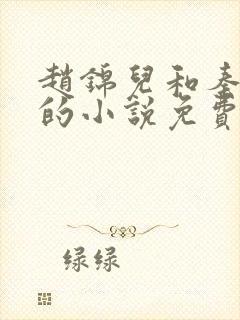 趙錦兒和秦
的小説免費
绿绿